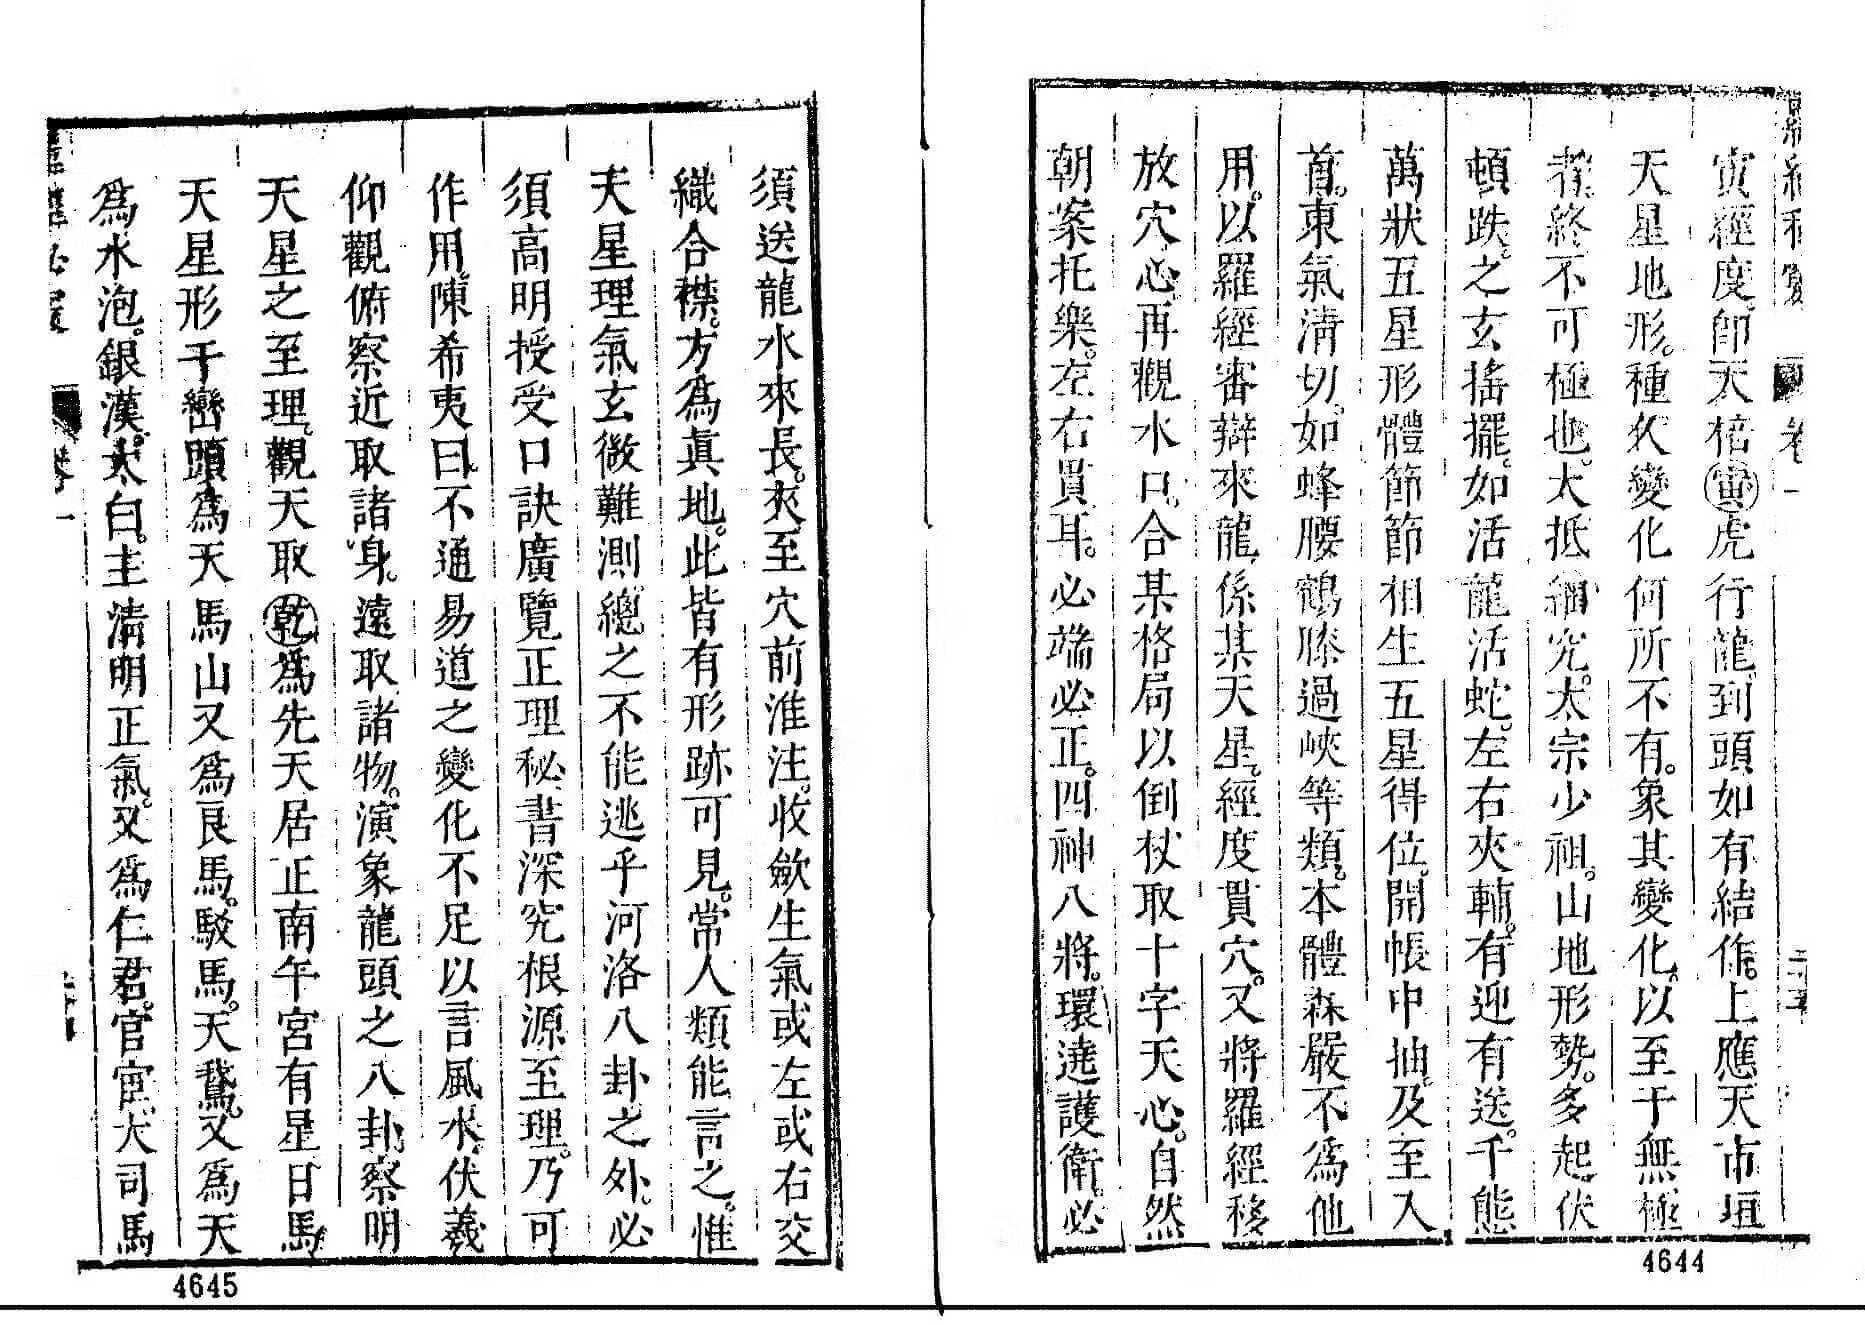 寅經度。師太棓寅虎行龍。到頭如有結作。上應天市垣
天星地形。種久變化何所不有。象其變化。以至于無極
者。終不可極也。大抵細究。太宗少祖。山地形勢。多起伏
頓跌。之玄搖擺。如活龍活蛇。左右夾輔。有迎有送。千態
萬狀五星形體節節相生五星得位。開帳中抽。及至入
首。東氣淸切。如蜂腰鶴膝過峽等類。本體森嚴不爲他
用。以羅經審辯來龍。係某天星。經度貫穴。又將羅經移
放穴心。再觀水口。合某格局以倒杖取十字天心。自然
朝案托樂。左右貫耳。必端必正。四神八將。環遶護衛。必
4644
須送龍水來長。來至穴前淮注。收歛生氣或左或右交
織合襟。方爲眞地。此皆有形跡可見。常人類能言之。惟
天星理氣玄微難測。總之不能逃乎河洛八卦之外。必
須高明授受口訣廣覽正理秘書深究根源至理。乃可
作用。陳希夷曰。不通易道之變化不足以言風水。伏羲
仰觀俯察近取諸身。遠取諸物。演象龍頭之八卦。察明
天星之至理。觀天取乾爲先天居正南午宮有星日馬
天星形于巒頭爲天馬山又爲艮馬。駁馬。天鵞。又爲天
爲水泡。銀漢。太白。主清明正氣。又爲仁君。官宦。大司馬
卷一
4645